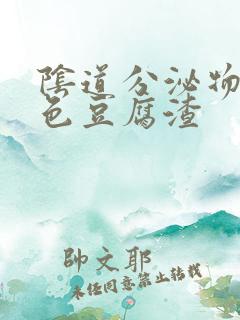 陰道分泌物
色豆腐渣
帥文耶
未经同意禁止转载